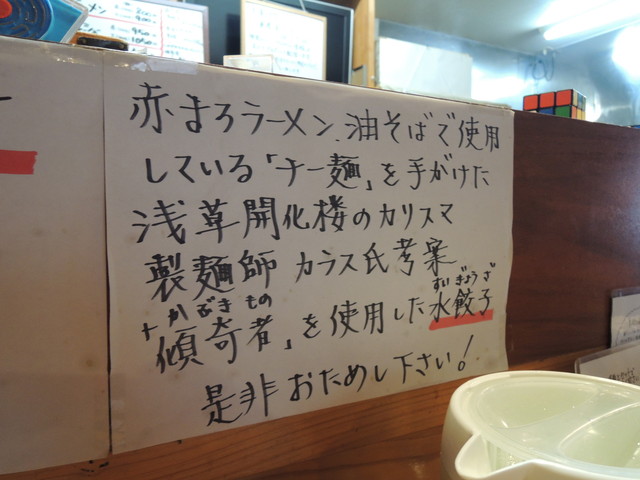 赤まろラーメン、油そばで使用
している「ナー麺」を手がけた
浅草開化楼のカリスマ
製麺師 カラス氏考案
かぶきもの
「傾奇者」を使用した水餃子
すいぎょうざ
是非おためし下さい!